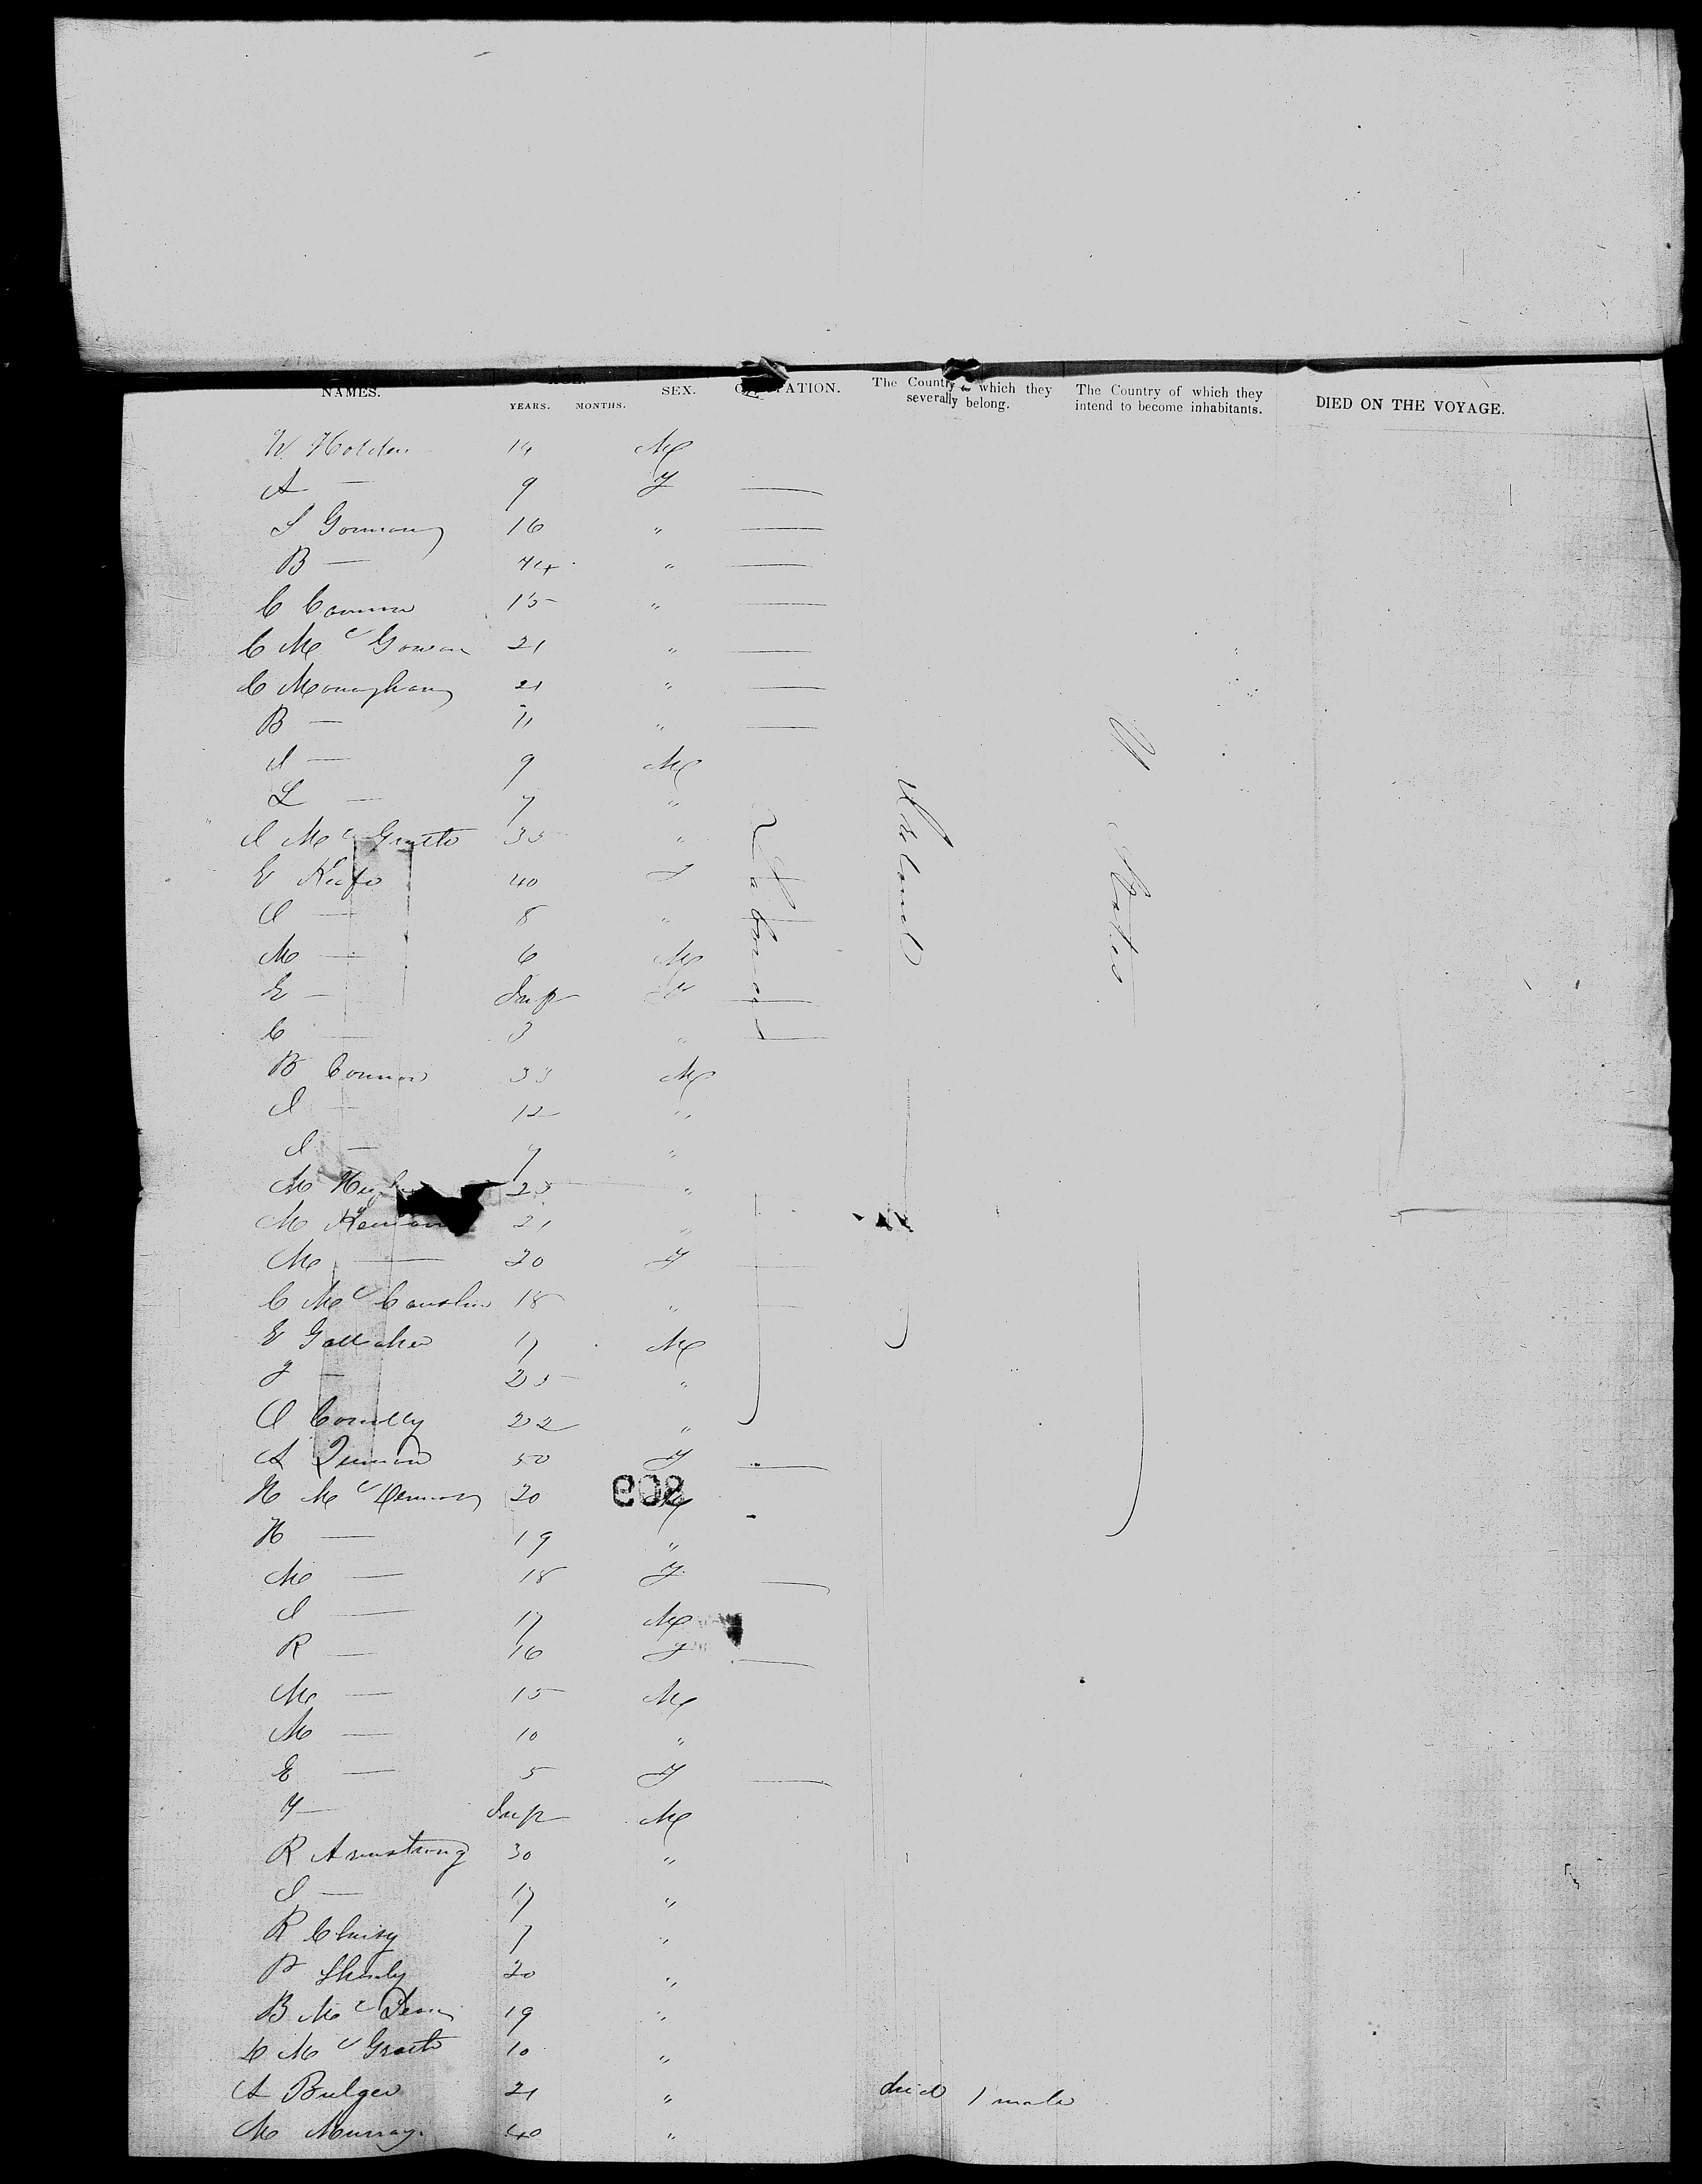 NAMES. AGE. YEARS. MONTHS. SEX. OCCUPATION. The Country to which they severally belong. The Country of which they intend to become inhabitants. DIED ON THE VOYAGE.
W. Holden 14 M
A — 9 F —
S Gorman 16 " —
B — 44 " —
C Connor 15 " —
C McGowan 21 " —
C Monaghan 21 " —
B — 11 " —
I — 9 M
L — 7 "
I McGrath 35 "
E Keefe 40 F
A — 8 " —
M — 6 M
E — Inf F —
C — 3 " —
B Connor 33 M
I — 12 "
I — 7 "
M 25 "
M 21 "
M — 20 F —
C McCauslin 18 " —
E Gallaher 17 M
F — 25 "
A Conolly 22 "
A 50 F —
H McDermott 20 M
H — 19 "
M — 18 F —
I — 17 M
R — 16 F —
M — 15 M
M — 10 "
E — 5 F —
F — Inf M
R Armstrong 30 "
I — 17 "
R 7 "
P 20 "
B Mc 19 "
L McGrath 10 "
A Bulger 21 "
M Murray. 40 "
Laborer
Ireland
U States
809
died 1 male